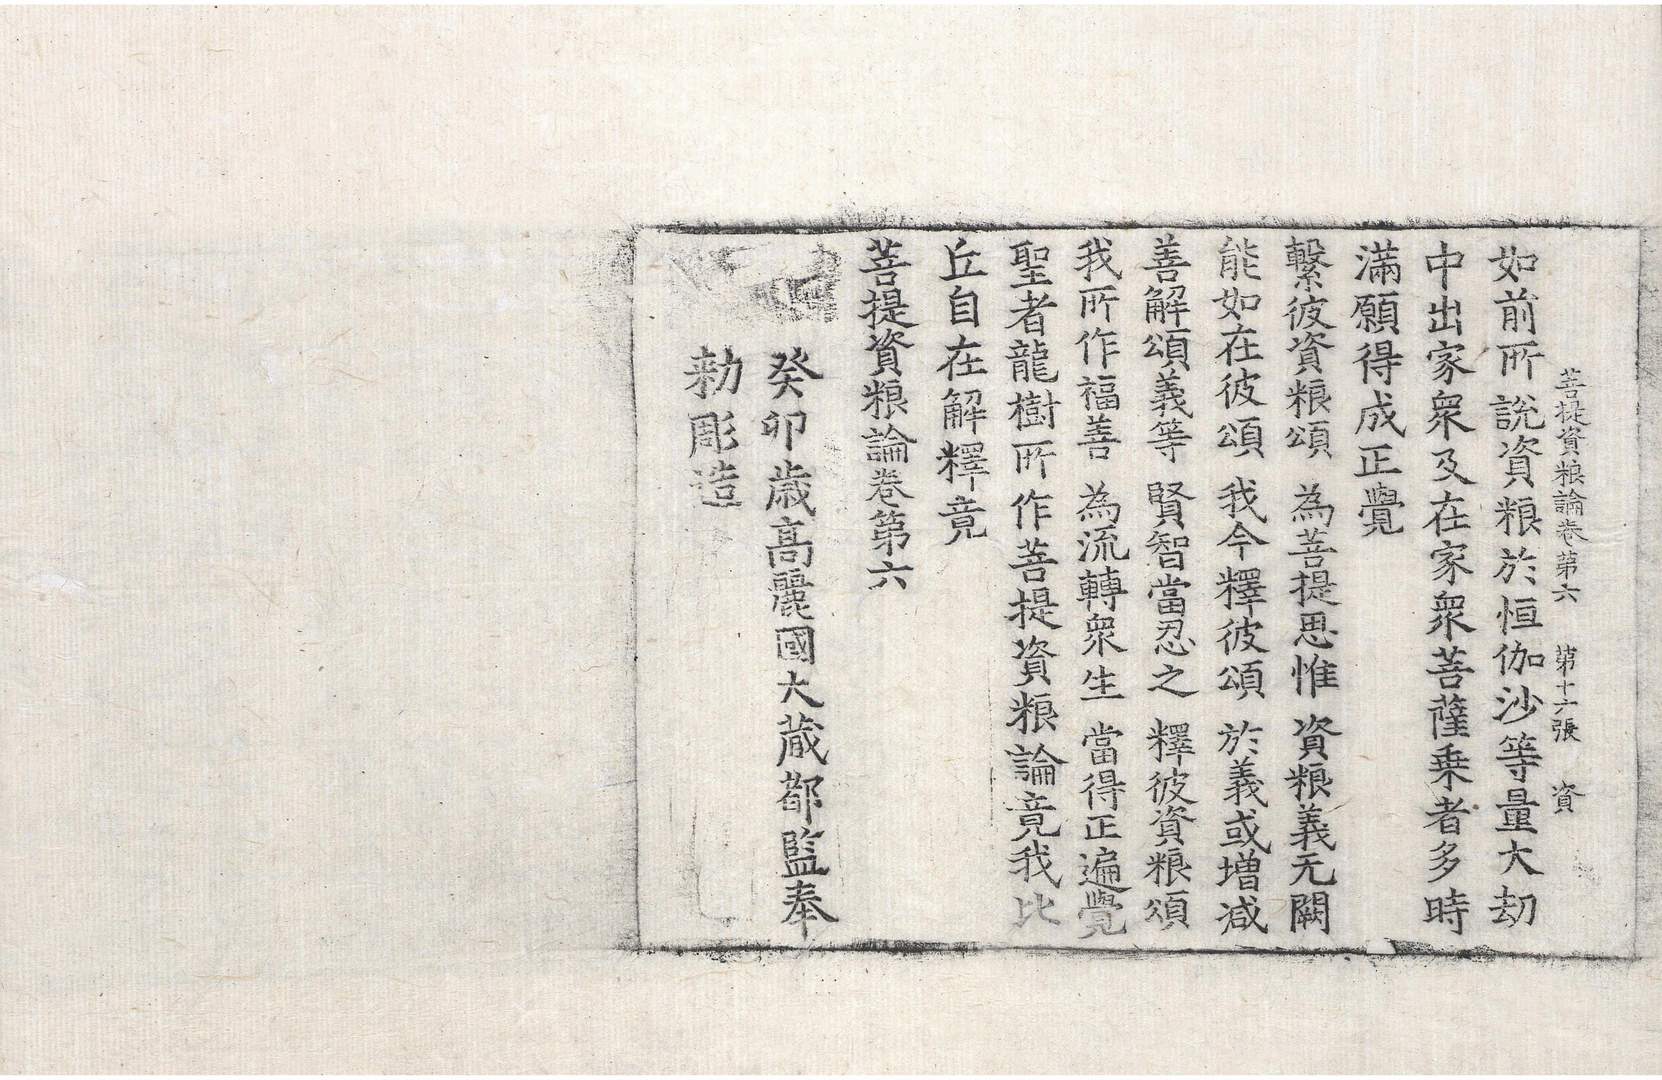 菩提資粮論卷第六　第十六張　資
如前所說資粮於恒伽沙等量大劫
中出家衆及在家衆菩薩乗者多時
滿願得成正覺
繫彼資粮頌　為菩提思惟　資粮義无闕
能如在彼頌　我今釋彼頌　於義或增减
善解頌義等　賢智當忍之　釋彼資粮頌
我所作福善　為流轉衆生　當得正遍覺
聖者龍樹所作菩提資粮論竟我比
丘自在解釋竟
菩提資粮論卷第六
癸卯歳高麗國大藏都監奉
勑彫造